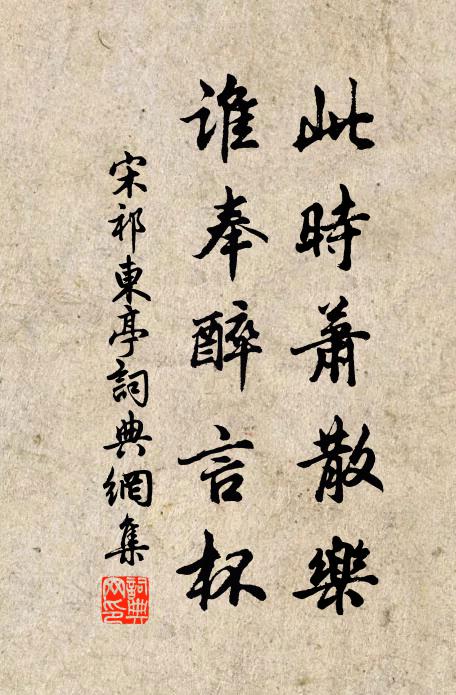 此時蕭散樂
誰奉醉言杯
宋祁東亭詞典網集
詞典网印